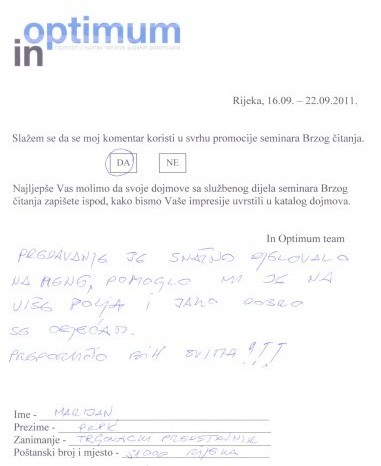 in optimum
Rijeka, 16.09. – 22.09.2011.
Slažem se da se moj komentar koristi u svrhu promocije seminara Brzog čitanja.
DA NE
Najljepše Vas molimo da svoje dojmove sa službenog dijela seminara Brzog
čitanja zapišete ispod, kako bismo Vaše impresije uvrstili u katalog dojmova.
In Optimum team
PREDAVANJE JE SNAŽNO DJELOVALO
NA MENE, POMOGLO MI JE NA
VIŠE POLJA I JAKO DOBRO
SE OSJEĆAM.
PREPORUČIO BIH SVIMA!!!
Ime - MARIJAN
Prezime -
Zanimanje - TRGOVAČKI PREDSTAVNIK
Poštanski broj i mjesto - 51000 RIJEKA